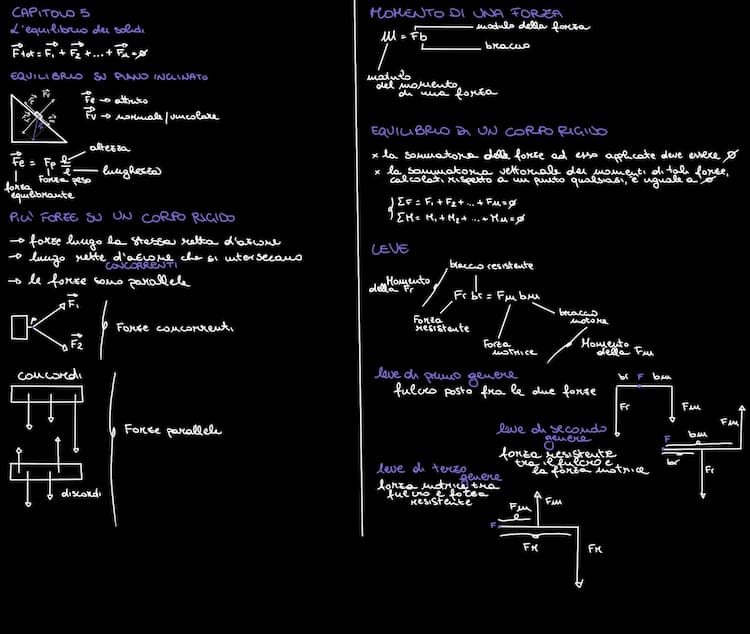 CAPITOLO 5
L'equilibrio dei solidi
Ftot = F1 + F2 + ... + Fn = ø
EQUILIBRIO SU PIANO INCLINATO
Fe → attrito
Fv → normale/vincolare
Fe = Fp h/l
altezza
lunghezza
Forza peso
forza
equilibrante
PIU' FORZE SU UN CORPO RIGIDO
→ forze lungo la stessa retta d'azione
→ lungo rette d'azione che si intersecano
CONCORRENTI
→ le forze sono parallele
P
F1
F2
Forze concorrenti
concordi
Forze parallele
discordi
MOMENTO DI UNA FORZA
modulo della forza
M = Fb
braccio
modulo
del momento
di una forza
EQUILIBRIO DI UN CORPO RIGIDO
× la sommatoria delle forze ad esso applicate deve essere ø
× la sommatoria vettoriale dei momenti di tali forze,
calcolati rispetto a un punto qualsiasi, è uguale a ø
ΣF = F1 + F2 + ... + Fn = ø
ΣM = M1 + M2 + ... + Mn = ø
LEVE
braccio resistente
Momento
della Fr
Fr br = Fm bm
Forza
resistente
braccio
motore
Forza
motrice
Momento
della Fm
leve di primo genere
fulcro posto fra le due forze
br F bm
Fr
Fm
leve di secondo
genere
forza resistente
tra il fulcro e
la forza motrice
F
bm
Fm
br
Fr
leve di terzo
genere
forza motrice tra
fulcro e forza
resistente
Fm
Fm
F
FR
FR